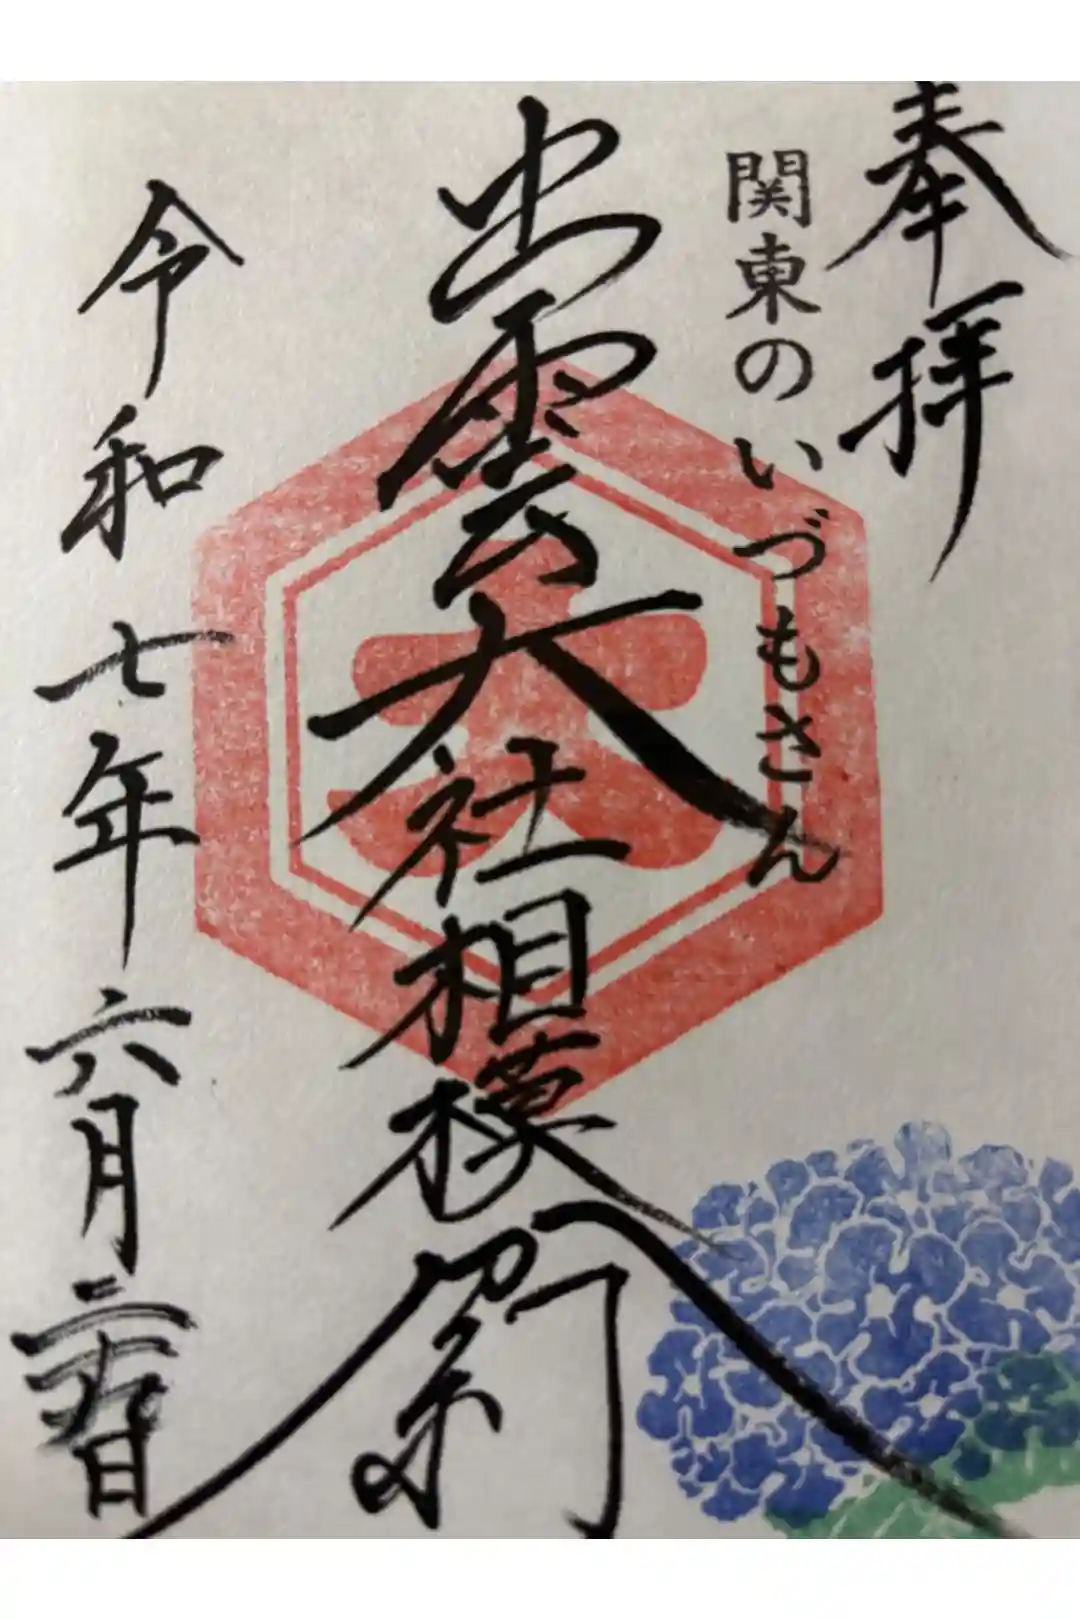 奉拝
関東のいづもさん
出雲大社相模分祠
大
令和七年六月